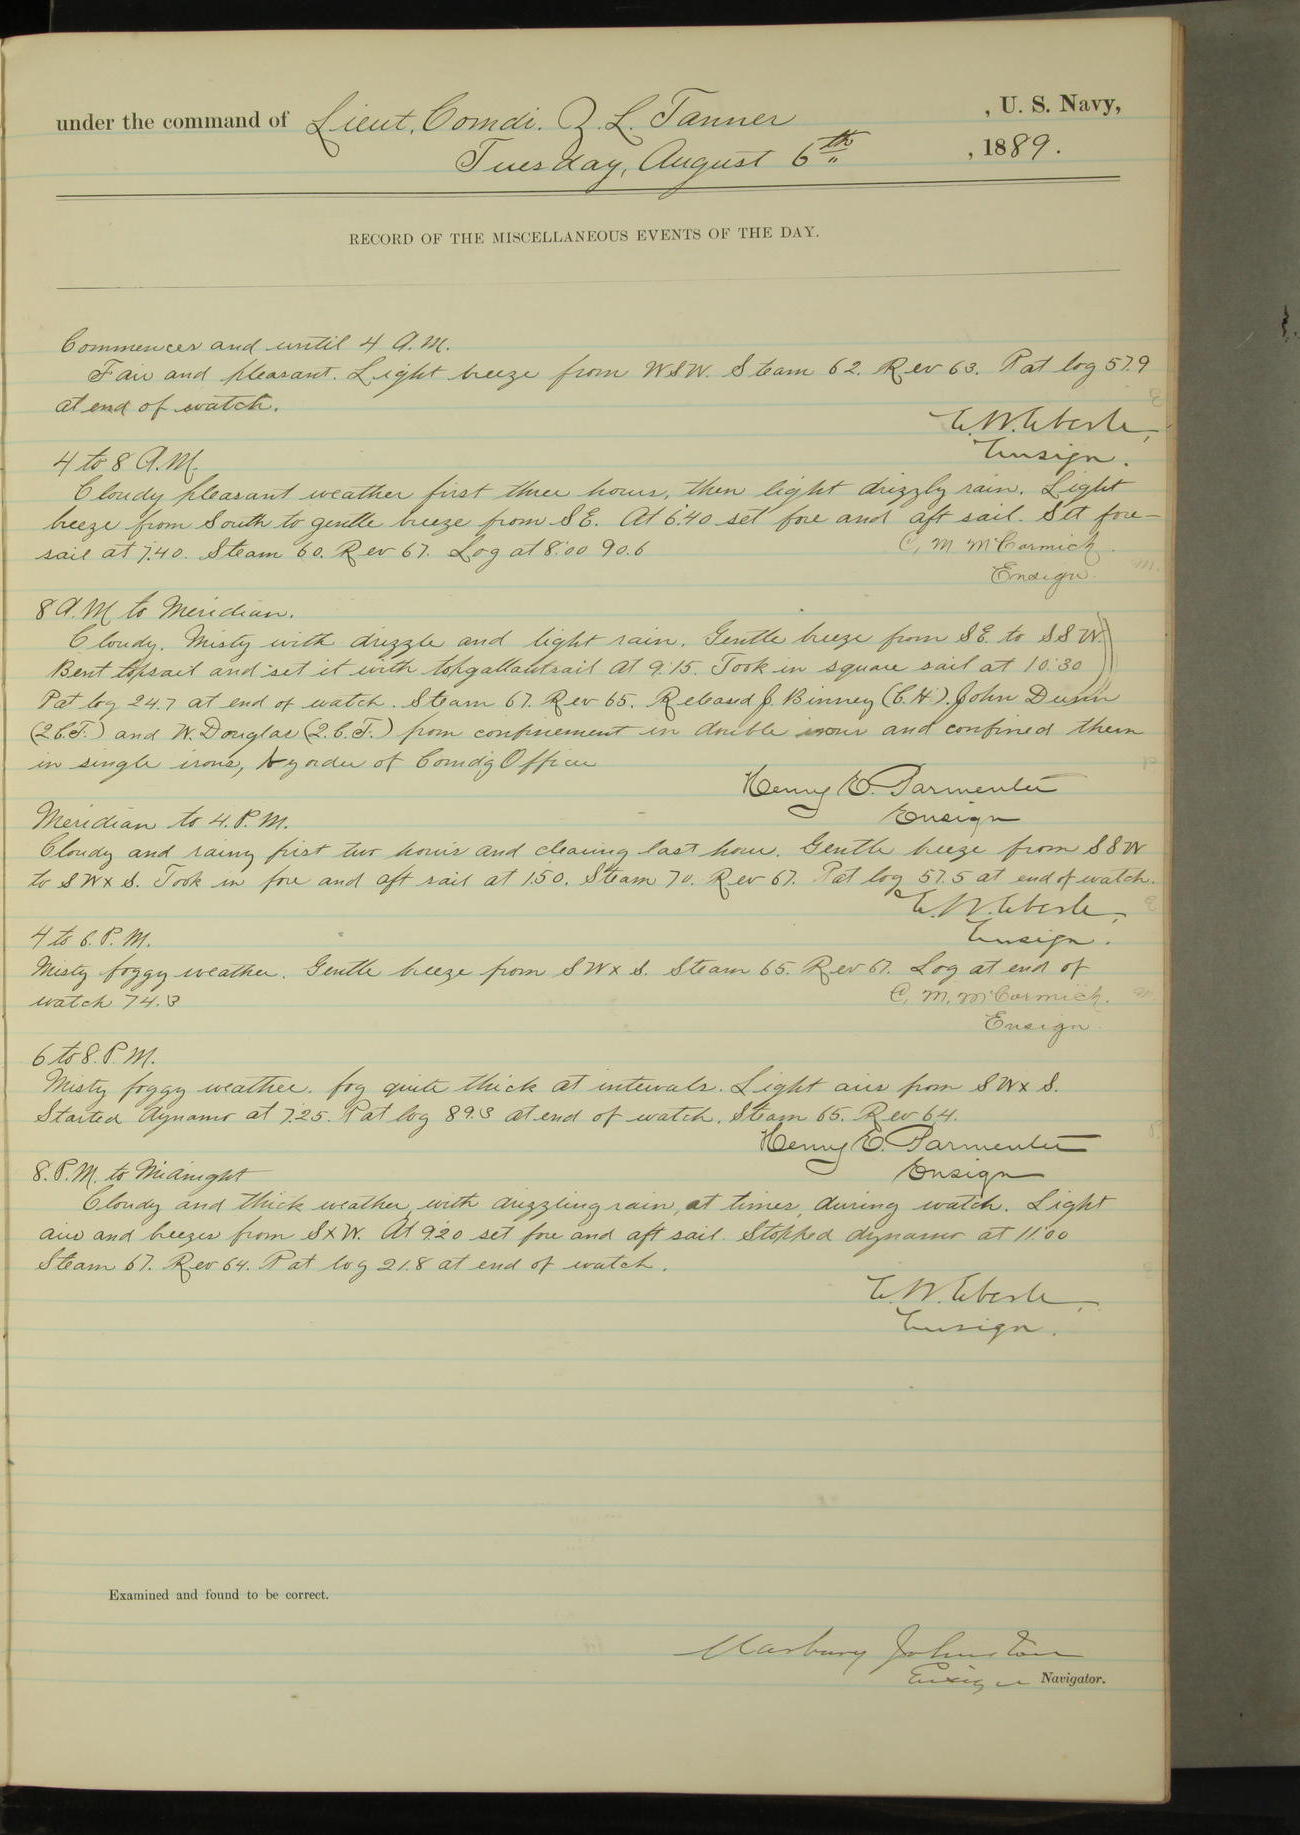 under the command of Lieut. Comdr. Z. L. Tanner , U. S. Navy,
Tuesday, August 6th , 1889.
RECORD OF THE MISCELLANEOUS EVENTS OF THE DAY.
Commences and until 4 A.M.
Fair and pleasant. Light breeze from WSW. Steam 62. Rev 63. Pat log 57.9
at end of watch.
E. W. Eberle,
Ensign.
4 to 8 A.M.
Cloudy pleasant weather first three hours, then light drizzly rain. Light
breeze from South to gentle breeze from SE. At 6:40 set fore and aft sail. Set fore-
sail at 7.40. Steam 60. Rev 67. Log at 8:00 90.6
C, M McCormick.
Ensign.
8 A.M. to Meridian.
Cloudy. Misty with drizzle and light rain. Gentle breeze from SE. to SSW.
Bent topsail and set it with topgallantsail at 9:15. Took in square sail at 10:30
Pat log 24.7 at end of watch. Steam 67. Rev 65. Released J. Binney (C.H.). John Dunn
(2.C.F.) and W. Douglas (2.C.F.) from confinement in double irons and confined them
in single irons, by order of Comdg Officer
Henry E. Parmenter
Ensign
Meridian to 4. P.M.
Cloudy and rainy first two hours and clearing last hour. Gentle breeze from SSW
to SWxS. Took in fore and aft sail at 1.50. Steam 70. Rev 67. Pat log 57.5 at end of watch.
E. W. Eberle,
Ensign.
4 to 6. P.M.
Misty foggy weather. Gentle breeze from SWxS. Steam 65. Rev 67. Log at end of
watch 74.3
C, M, McCormick.
Ensign.
6 to 8. P.M.
Misty foggy weather. fog quite thick at intervals. Light airs from SWxS.
Started dynamo at 7.25. Pat log 89.3 at end of watch. Steam 65. Rev 64.
Henry E. Parmenter
Ensign
8. P.M. to Midnight
Cloudy and thick weather, with drizzling rain, at times, during watch. Light
airs and breezes from SxW. At 9:20 set fore and aft sail. Stopped dynamo at 11:00
Steam 67. Rev 64. Pat log 21.8 at end of watch.
E. W. Eberle,
Ensign.
Examined and found to be correct.
Marbury Johnston
Ensign Navigator.